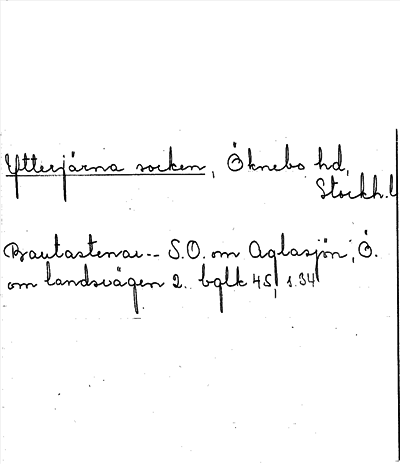 Ytterjärna socken, Öknebo hd,
Stockh.l
Bautastenar-- S.O. om Aglasjön, Ö.
om landsvägen 2. bglk 45, s.34